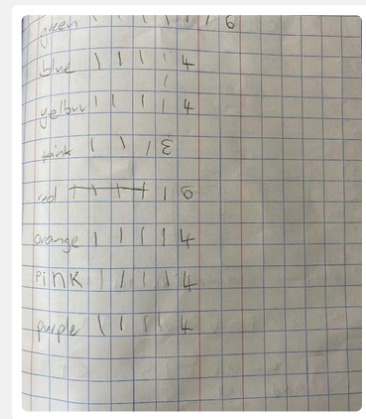 green | | | | | | | 6
blue | | | | | 4
yellow | | | | | 4
| | | 3
red | | | | | 6
orange | | | | 4
PiNK | | | | | 4
purple | | | | 4